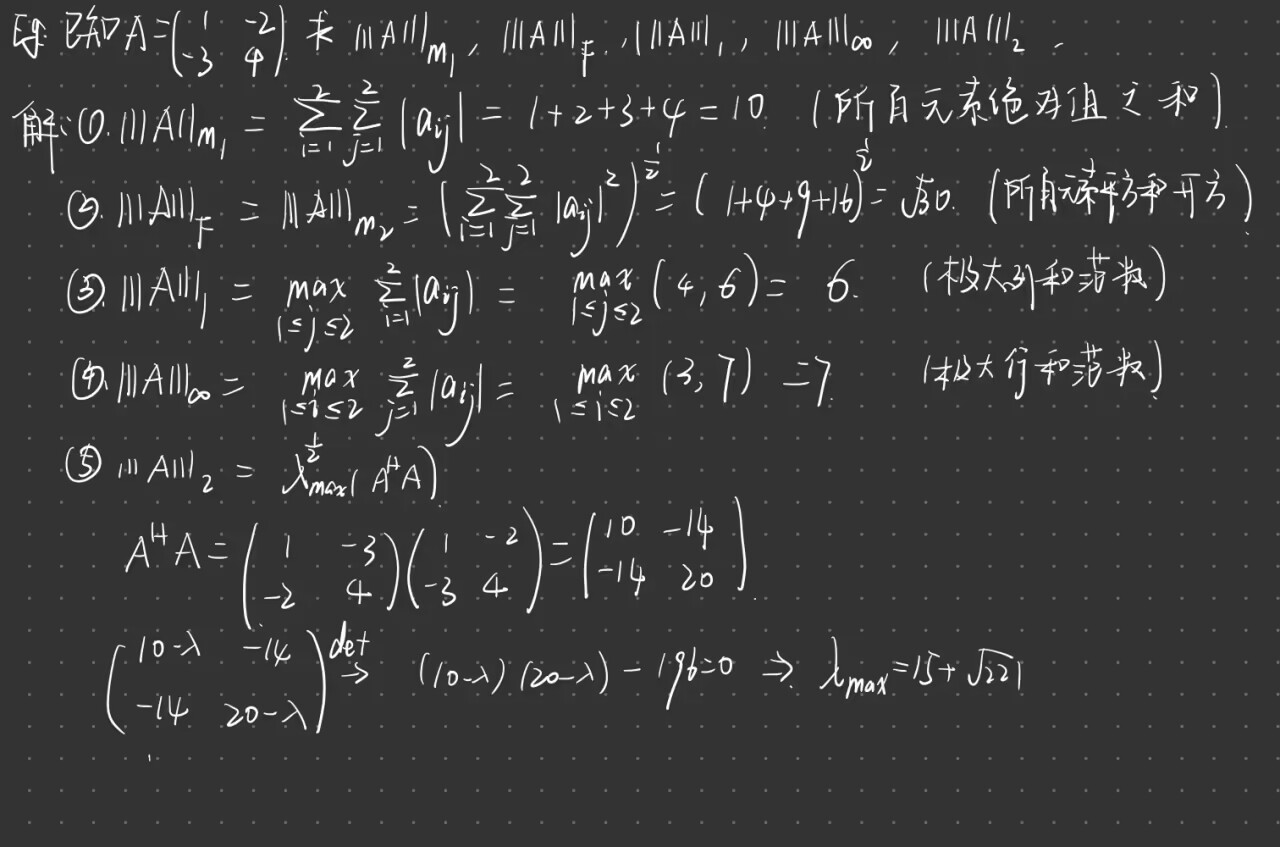 例: 已知 A=(1 -2; -3 4) 求 |||A|||_{m_1}, |||A|||_F, |||A|||_1, |||A|||_∞, |||A|||_2.
解: ①. |||A|||_{m_1} = ∑_{i=1}^{2} ∑_{j=1}^{2} |a_{ij}| = 1+2+3+4=10. (所有元素绝对值之和)
②. |||A|||_F = |||A|||_{m_2} = (∑_{i=1}^{2} ∑_{j=1}^{2} |a_{ij}|^2)^{1/2} = (1+4+9+16)^{1/2} = √30. (所有元素平方和开方)
③. |||A|||_1 = max_{1≤j≤2} ∑_{i=1}^{2} |a_{ij}| = max_{1≤j≤2} (4, 6) = 6. (极大列和范数)
④. |||A|||_∞ = max_{1≤i≤2} ∑_{j=1}^{2} |a_{ij}| = max_{1≤i≤2} (3, 7) = 7. (极大行和范数)
⑤ |||A|||_2 = λ_{max}^{1/2} (A^H A)
A^H A = (1 -3; -2 4)(1 -2; -3 4) = (10 -14; -14 20)
(10-λ -14; -14 20-λ) det→ (10-λ)(20-λ) - 196=0 ⇒ λ_{max} = 15+√221